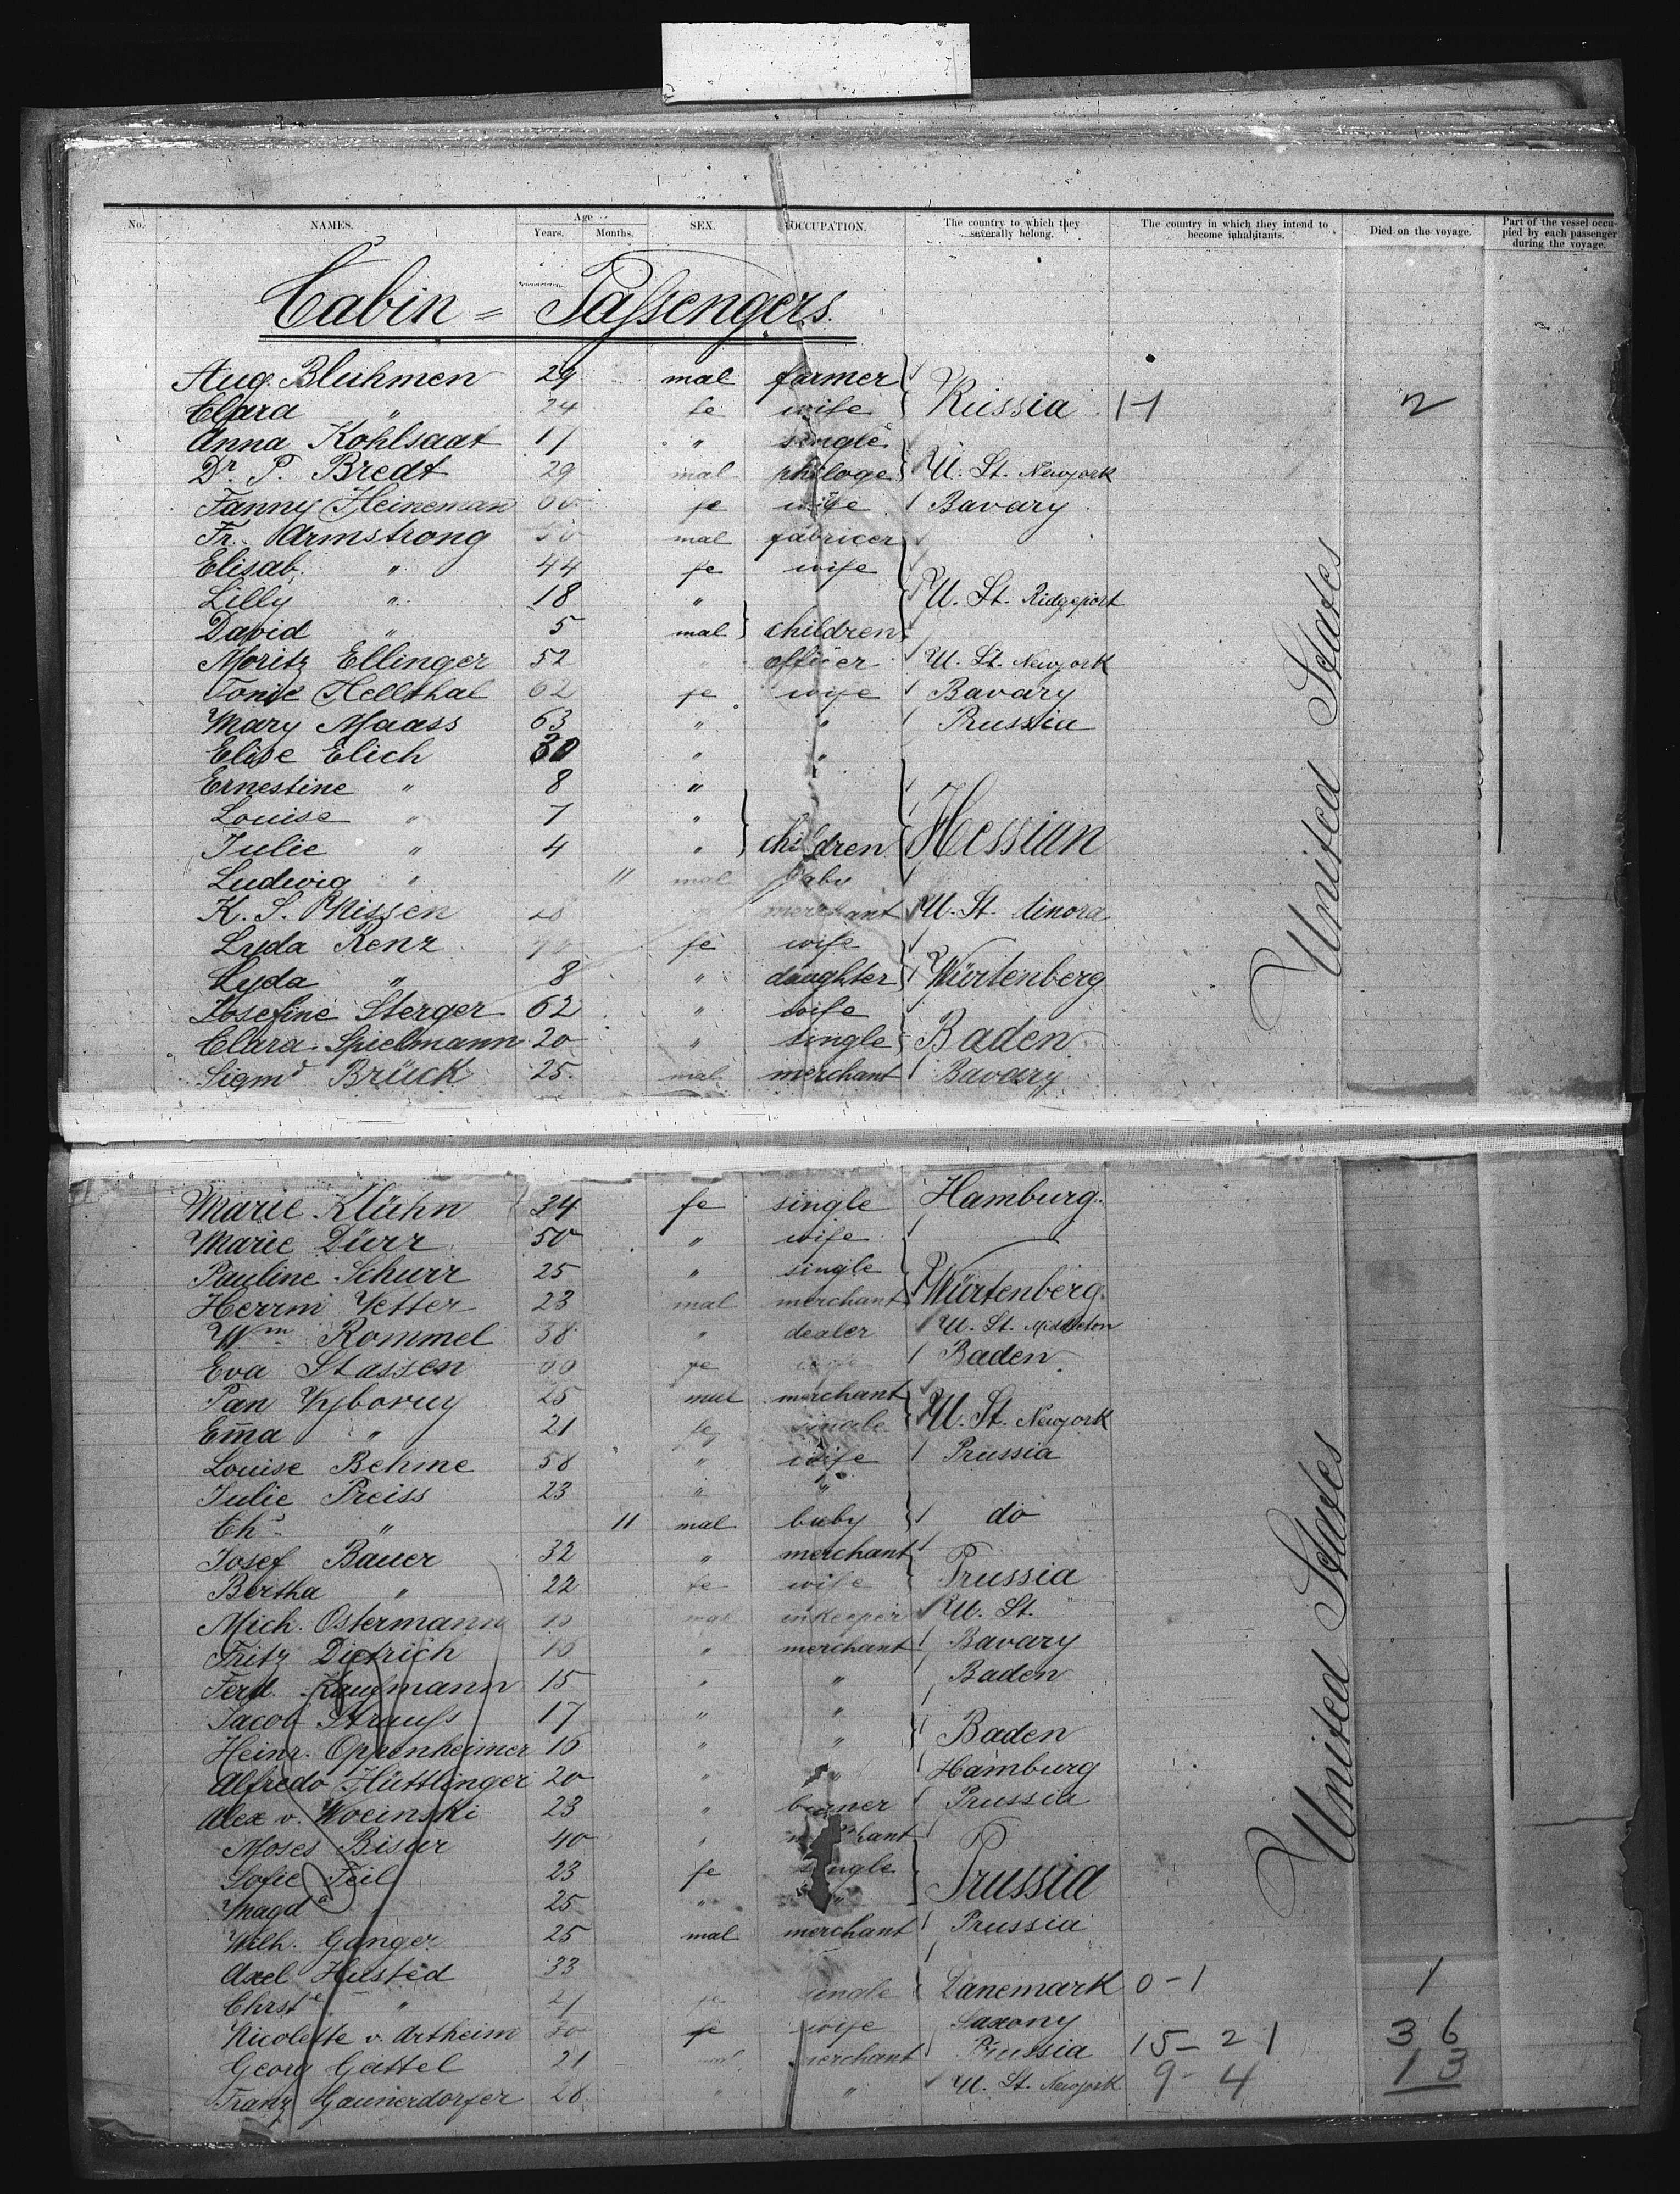 No. NAMES. Age Years. Months. SEX. OCCUPATION. The country to which they severally belong. The country in which they intend to become inhabitants. Died on the voyage. Part of the vessel occupied by each passenger during the voyage.
Cabin = Passengers.
Aug. Bluhmen 29 mal farmer
Clara " 24 fe wife Russia 1-1 2
Anna Kohlsaat 17 " single
Dr. P. Bredt 29 mal philoge U. St. Newyork
Fanny Heineman 60 fe wife Bavary
Fr. Armstrong 50 mal fabricer
Elisab. " 44 fe wife
Lilly " 18 " U. St. Ridgeport
David " 5 mal children
Moritz Ellinger 52 " officer U. St. Newyork
Tonie Hellthal 62 fe wife Bavary
Mary Maass 63 " " Prussia
Elise Elich 30 " "
Ernestine " 8 "
Louise " 7 "
Julie " 4 " children Hessian
Ludwig " 11 mal baby
K. S. Nissen 28 " merchant U. St.
Lyda Renz fe wife
Lyda " 8 " daughter Würtenberg
Josefine Sterger 62 " wife
Clara Spielmann 20 " single Baden
Sigmd Brück 25 mal merchant Bavary
United States
Marie Klühn 34 fe single Hamburg
Marie Dürr 50 " wife
Pauline Schurr 25 " single
Herrm Yetter 23 mal merchant Würtenberg
Wm Rommel 38 " dealer U. St. Middleton
Eva Stassen 60 fe wife Baden
Pan Vyborny 25 mal merchant
Em̄a " 21 fe single U. St. Newyork
Louise Behme 58 " wife Prussia
Julie Preiss 23 " "
Chs " 11 mal baby do
Josef Bauer 32 " merchant
Bertha " 22 fe wife Prussia
Mich. Ostermann mal inkeeper U. St. "
Fritz Dietrich 16 " merchant Bavary
Ferd. Kaufmann 15 " " Baden
Jacob Strauss 17 " "
Heinr. Oppenheimer 16 " " Baden
Alfredo Hüttlinger 20 " " Hamburg
Alex v. Woeinski 23 " Prussia
Moses Bisur 40 " merchant
Sofie Feil 23 fe single Prussia
Magde 25 " "
Wilh. Ganger 25 mal merchant Prussia
Axel Husted 33
Chrste " 21 fe single Danemark 0-1 1
Nicolette v. Artheim 30 fe wife Saxony
Georg Gattel 21 mal merchant Prussia 15-21 36
Franz Gaunerdorfer 28 " " U. St. Newyork 9-4 13
United States